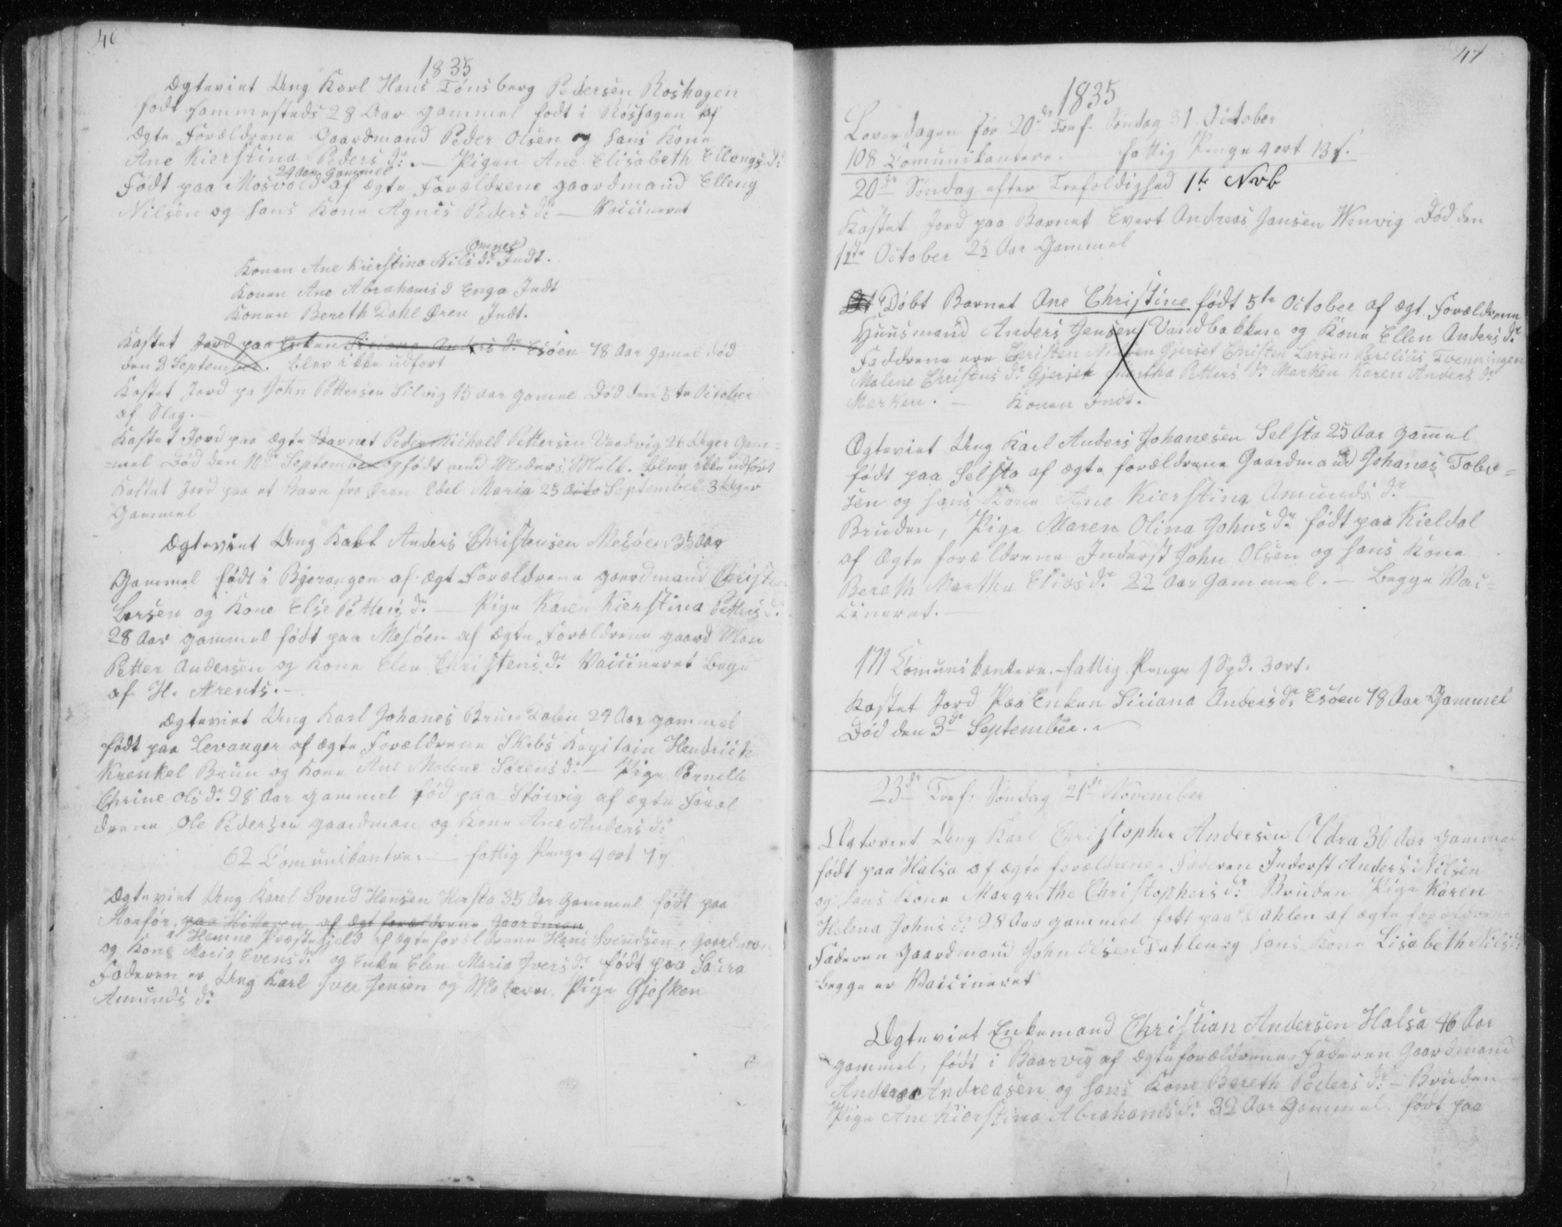 46
1835
Ægteviet Ung Karl Hans Tønsberg Pedersen Roshagen
født sammesteds 28 Aar gammel født i Roshagen af
Ægte Forældrene Gaardmand Peder Olsen og hans Kone
Ane Kierstina Peders dr. — Pigen Ane Elisabeth Ellengs dr
24 Aar gammel
Født paa Mosvold af ægte Forældrene gaardmand Elleng
Nilsen og hans Kone Agnis Peders dr — Vaccineret
Konen Ane Kierstina Nils dr Indt.
Konen Ane Abrahams d Enga Indt
Konen Bereth Dahl Øren Indt.
Kastet Jord paa Enken Siriana Anders dr Esøen 78 Aar gamel død
den 3 September. blev ikke udført
Kastet Jord pa John Pettersen Silvig 15 Aar gamel Død den 5te October
af Slag. —
Kastet Jord paa ægte Barnet Peder Michall Pettersen 26 Uger Gam=
=mel Død den 10de September opfødt med Moders Melk. blev ikke udført
Kastet Jord paa et Barn fra Øren Edel Maria 25 September 3 Uger
Gammel
Ægteviet Ung Karl Anders Christensen Mesøen 35 Aar
Gammel født i Bjerangen af Ægt Forældrene gaardmand Christen
Larsen og Kone Else Petters dr. — Pige Karen Kierstina Petters dr.
28 Aar gammel født paa Mesøen af ægte Forældrene gaard Man
Petter Andersen og Kone Elen Christens dr Vaccineret begge
af H. Arents. —
Ægteviet Ung Karl Johanes Brun Dalen 29 Aar gammel
født paa Levanger af ægte Forældrene Skibs Kapitain Hendrich
Krenkel Brun og Kone Ane Malene Sørens dr — Pige Pernelle
Chrine Ols dr 28 Aar gammel fød paa Storvig af ægte Foræl
drene Ole Pedersen gaardman og Kone Ane Anders dr
62 Comunikantere — fattig Penge 4 ort
Ægteviet Ung Karl Svend Hansen Horsta 35 Aar gammel født paa
paa af Ægt forældrene Gaardman
i Hemne Præstegjeld af ægte forældrene Hans Svendsen, Gaardman
og Kone Maria Evens dr og Enke Elen Maria Ivers dr født paa Saura
Faderen er Ung Karl Iver Jensen og Moderen Pige Gjesken
Amunds dr
47
1835
Loverdagen før 20de Tref. Søndag 31 October
108 Comunikantere. fattig Penge 4 ort 13 s.
20de Søndag efter Trefoldighed 1te Nvb
Kastet Jord paa Barnet Evert Andreas Jansen Wenvig Død den
October 2½ Aar Gammel
Døbt Barnet Ane Christine født 5te October af Ægt. Forældrene
Huusmand Anders Jensen Vandbakken og Kone Ellen Anders dr
Faddrene ere Christen Gjerset Christen Larsen
Malene Christens dr Gjerset Martha Petters dr Marken Karen Anders dr
Marken. — Konen Indt.
Ægteviet Ung Karl Anders Johanesen Selsta 25 Aar Gamel
født paa Selsta af ægte forældrene Gaardmand Johanes Tobi=
sen og hans Kone Ane Kierstina Amunds dr
Bruden, Pige Maren Olina Johns dr født paa Kieldal
af Ægte forældrene Inderst John Olsen og hans Kone
Bereth Martha Elias dr 22 Aar Gammel. — Begge Vac=
cineret. —
171 Comunikantere. — fattig Penge 1 Spd. 3 ort.
Kastet Jord Paa Enken Siriana Anders dr Esøen 78 Aar Gammel
Død den 3de September.
23de Tref: Søndag 21de November
Ægteviet Ung Karl Christopher Andersen Oldra 30 Aar Gammel
født paa Halsa af ægte forældrene. Faderen Inderst Anders Nilsen
og hans Kone Margrethe Christophers dr. Bruden Pige Karen
Helena Johns dr 28 Aar gammel født paa Dahlen af ægte forældrene
Faderen Gaardmand John Olsen Dahlen og hans Kone Lisabeth Nils dr
begge er Vaccineret
Ægteviet Enkemand Christian Andersen Halsa 46 Aar
gammel, født i Baarvig af ægte forældrene Faderen Gaardmand
Anders Andreasen og hans Kone Bereth Peders dr — Bruden
Pige Ane Kierstina Abrahams dr 32 Aar gammel, født paa